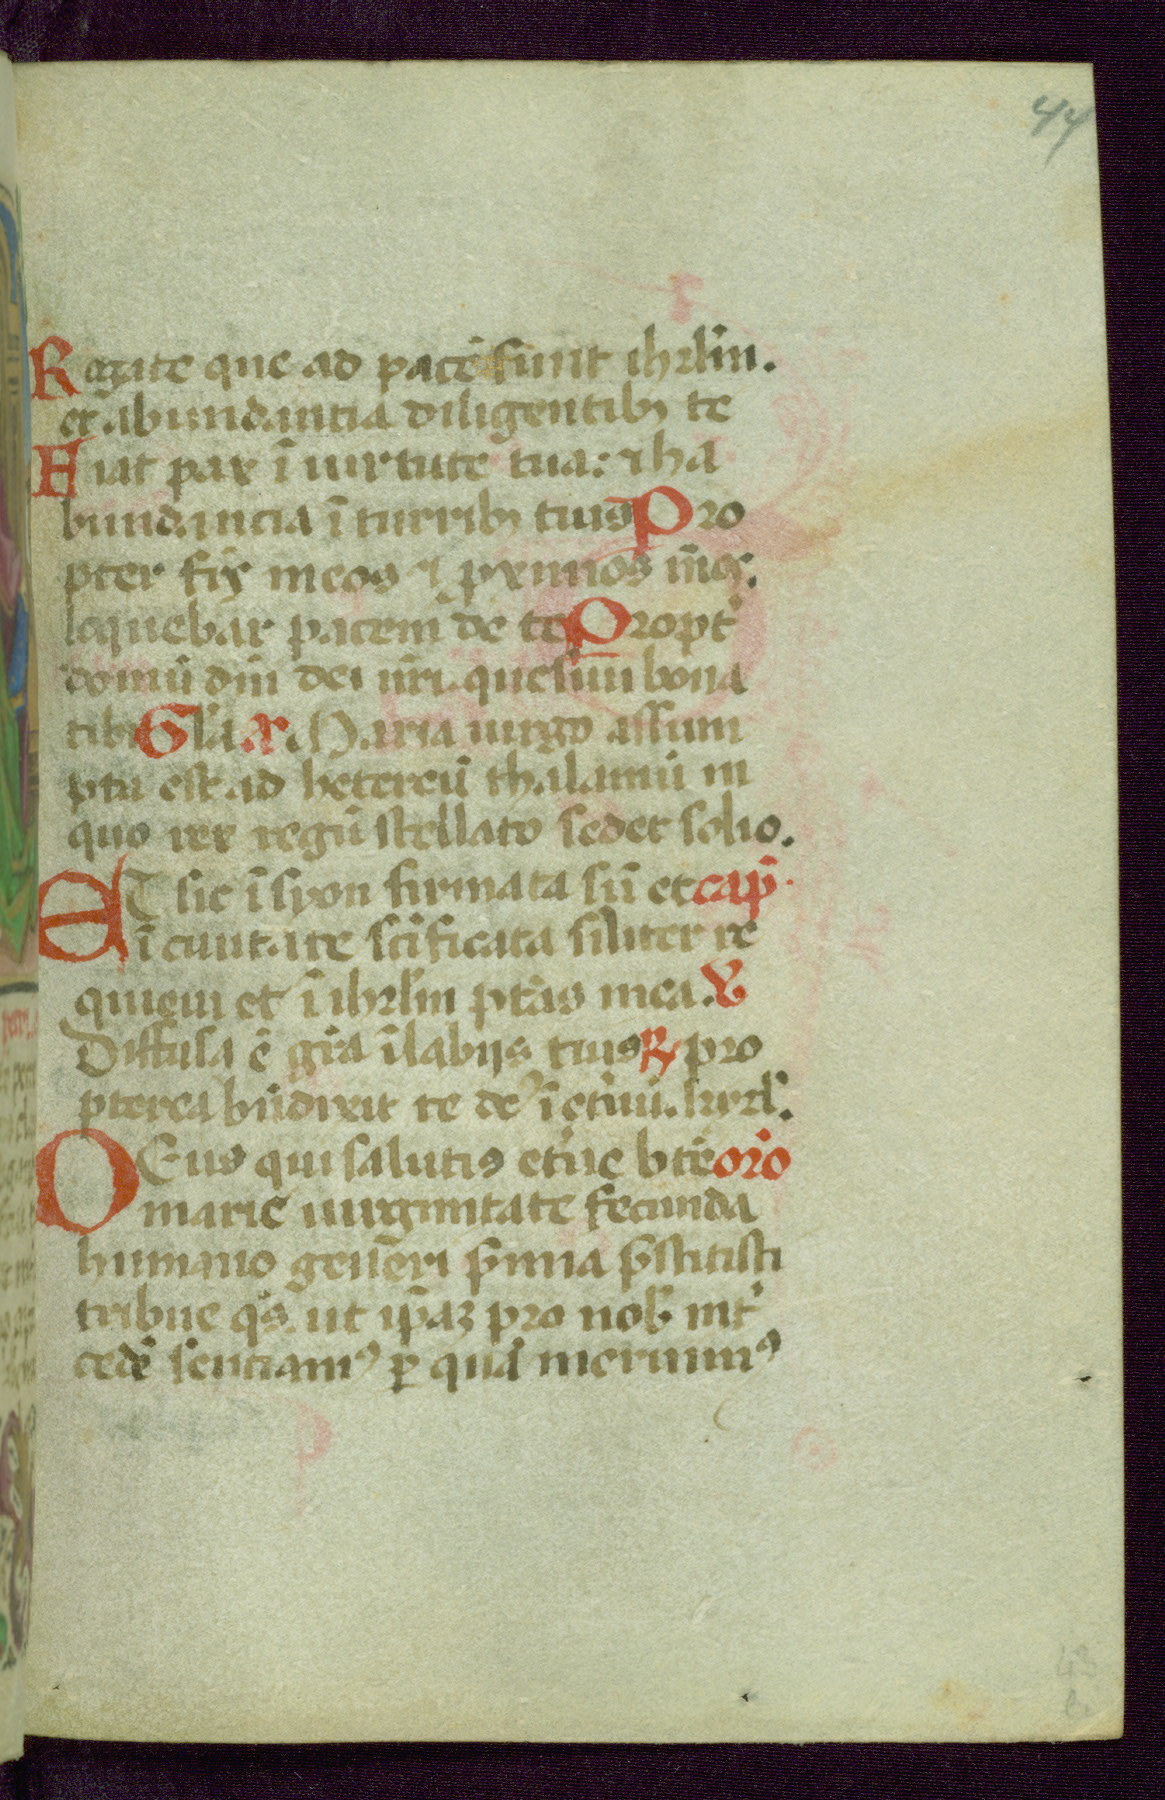 44
Rogate que ad pacē sunt ihrlm̄.
et abundantia diligentibꝫ te
Fiat pax ī uirtute tua: ⁊ ha
bundancia ī turribꝫ tuis Pro
pter fr̄s meos ⁊ pximos m̄os.
loquebar pacem de te Propt᾽
domū dn̄i dei nr̄i quesiui bona
tibi Gl̄a a᷒r Maria uirgo assum
pta est ad hetereū thalamū in
quo rex regū stellato sedet solio.
ET sic ī syon firmata sū et cap̄.
ī ciuitate sc̄ificata silīter re
quieui et ī ihrlm̄ ptās mea. ℣
Diffusa ē grā ī labijs tuis ℟ pro
pterea bn̄dixit te de᾽ ī et̄nū. kyrl᾽.
DEus qui salutis et̄ne btē orō
marie uirginitate fecunda
humano generi p̄mia p̄stitisti
tribue qs̄. ut ip̄aꝫ pro nob᾽ int᾽
cedē sentiam᾽ ꝑ quā meruim᾽
43